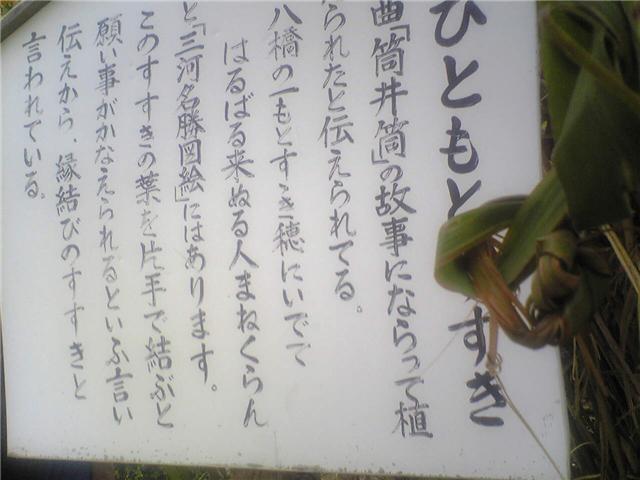 ひともとすすき
曲「筒井筒」の故事にならって植
られたと伝えられてる。
八橋の一もとすゝき穂にいでて
はるばる来ぬる人まねくらん
と「三河名勝図絵」にはあります。
このすすきの葉を片手で結ぶと
願い事がかなえられるといふ言い
伝えから、縁結びのすすきと
言われている。